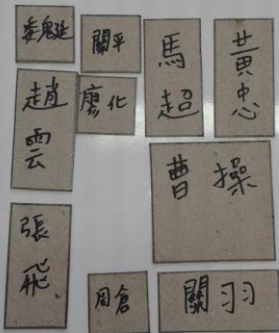 魏延
關平
馬超
黃忠
趙雲
廖化
曹操
張飛
周倉
關羽